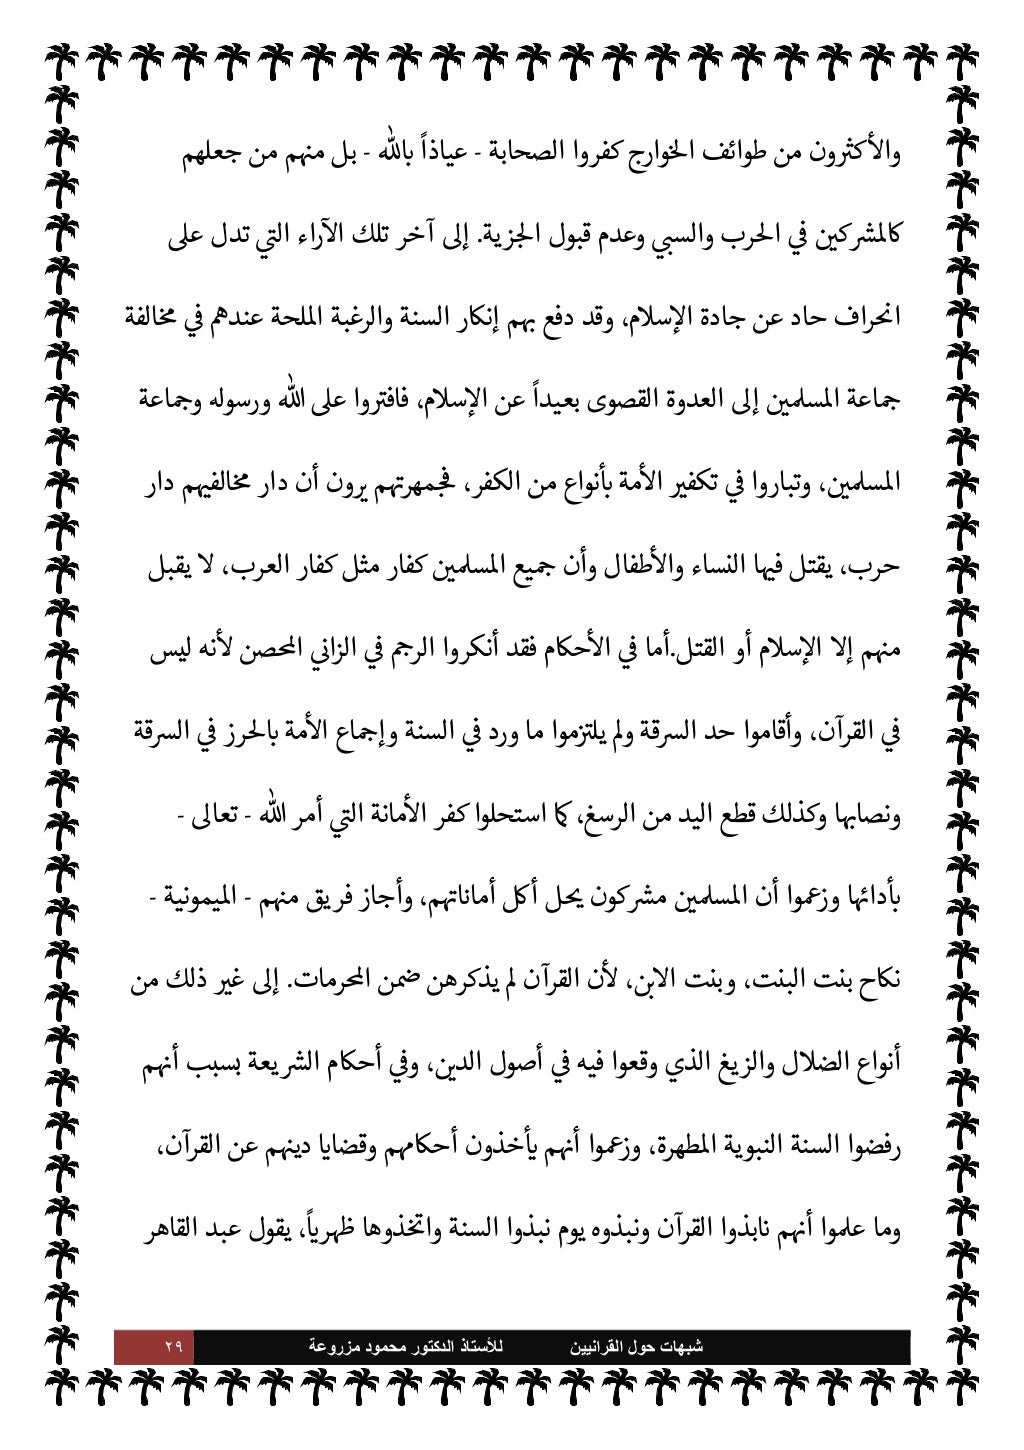 والأكثرون من طوائف الخوارج كفروا الصحابة - عياذاً بالله - بل منهم من جعلهم
كالمشركين في الحرب والسبي وعدم قبول الجزية. إلى آخر تلك الآراء التي تدل على
انحراف حاد عن جادة الإسلام، وقد دفع بهم إنكار السنة والرغبة الملحة عندهم في مخالفة
جماعة المسلمين إلى العدوة القصوى بعيداً عن الإسلام، فافتروا على الله ورسوله وجماعة
المسلمين، وتباروا في تكفير الأمة بأنواع من الكفر، فجمهرتهم يرون أن دار مخالفيهم دار
حرب، يقتل فيها النساء والأطفال وأن جميع المسلمين كفار مثل كفار العرب، لا يقبل
منهم إلا الإسلام أو القتل.أما في الأحكام فقد أنكروا الرجم في الزاني المحصن لأنه ليس
في القرآن، وأقاموا حد السرقة ولم يلتزموا ما ورد في السنة وإجماع الأمة بالحرز في السرقة
ونصابها وكذلك قطع اليد من الرسغ، كما استحلوا كفر الأمانة التي أمر الله - تعالى -
بأدائها وزعموا أن المسلمين مشركون يحل أكل أماناتهم، وأجاز فريق منهم - الميمونية -
نكاح بنت البنت، وبنت الابن، لأن القرآن لم يذكرهن ضمن المحرمات. إلى غير ذلك من
أنواع الضلال والزيغ الذي وقعوا فيه في أصول الدين، وفي أحكام الشريعة بسبب أنهم
رفضوا السنة النبوية المطهرة، وزعموا أنهم يأخذون أحكامهم وقضايا دينهم عن القرآن،
وما علموا أنهم نابذوا القرآن ونبذوه يوم نبذوا السنة واتخذوها ظهرياً، يقول عبد القاهر
شبهات حول القرانيين للأستاذ الدكتور محمود مزروعة ٢٩